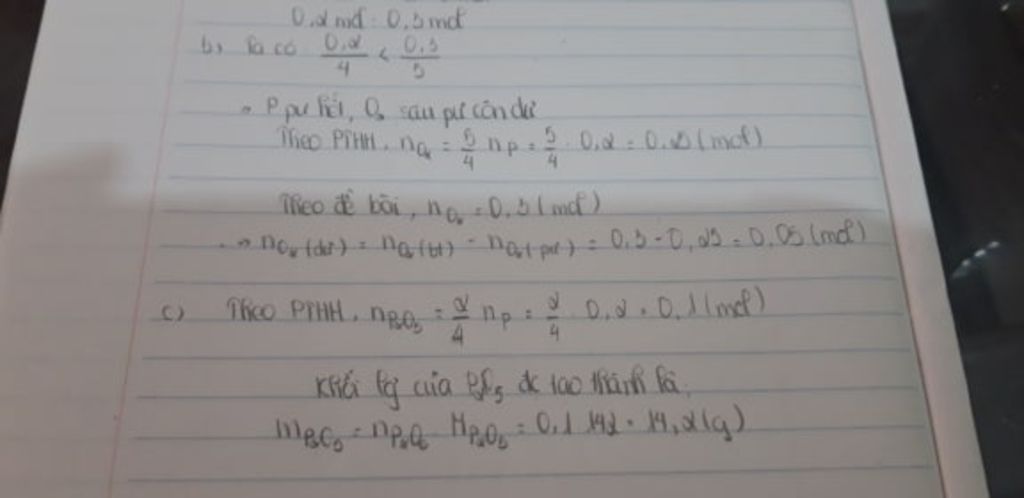 0,2 mol : 0,3 mol
b, Ta có 0,2/4 < 0,3/5
→ P pư hết, O₂ sau pư còn dư
Theo PTHH, nO₂ = 5/4 nP = 5/4 . 0,2 = 0,25 (mol)
Theo đề bài, nO₂ = 0,3 (mol)
→ nO₂ (dư) = nO₂ (bđ) - nO₂ (pư) = 0,3 - 0,25 = 0,05 (mol)
c) Theo PTHH, nP₂O₅ = 2/4 nP = 2/4 . 0,2 = 0,1 (mol)
Khối lg của P₂O₅ đc tạo thành là:
mP₂O₅ = nP₂O₅ . MP₂O₅ = 0,1 . 142 = 14,2 (g)